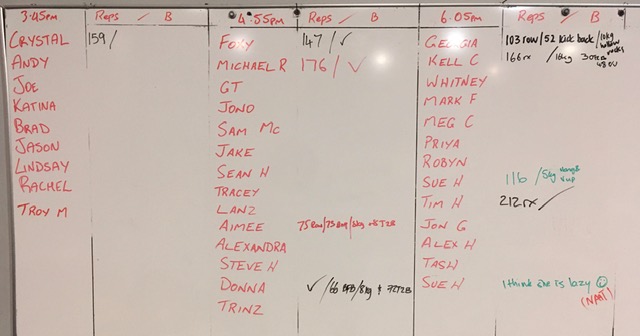 3:45pm Reps / B
CRYSTAL 159/
ANDY
JOE
KATINA
BRAD
JASON
LINDSAY
RACHEL
TROY M
4:55pm Reps / B
FOXY 147/✓
MICHAEL R 176/✓
GT
JONO
SAM MC
JAKE
SEAN H
TRACEY
LANZ
AIMEE 75 Row/75
ALEXANDRA
STEVE H
DONNA ✓/66 /8kg + 72T2B
TRINZ
6:05pm Reps / B
GEORGIA 103 row/52 kick back/10kg
KELL C 166rx /
WHITNEY
MARK F
MEG C
PRIYA
ROBYN
SUE H 116 / 5kg
TIM H 212rx/
JON G
ALEX H
TASH
SUE H I think she is lazy
(NAAT)